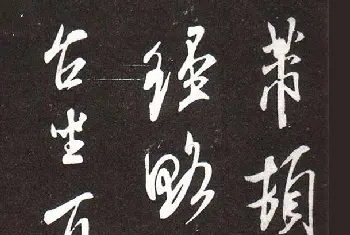 芾頓
經略
台坐